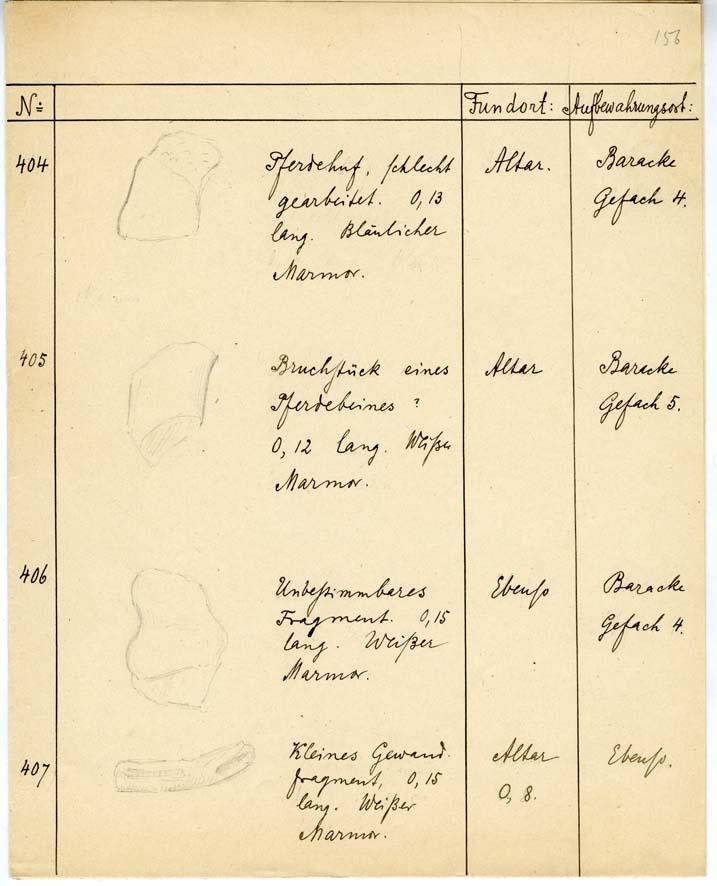 156
No: Fundort: Aufbewahrungsort:
404 Pferdehuf, schlecht Altar. Baracke
gearbeitet. 0,13 Gefach 4.
lang. Bläulicher
Marmor.
405 Bruchstück eines Altar Baracke
Pferdebeines ? Gefach 5.
0,12 lang. Weißer
Marmor.
406 Unbestimmbares Ebenso Baracke
Fragment. 0,15 Gefach 4.
lang. Weißer
Marmor.
407 Kleines Gewand- Altar Ebenso.
fragment, 0,15 O, 8.
lang. Weißer
Marmor.